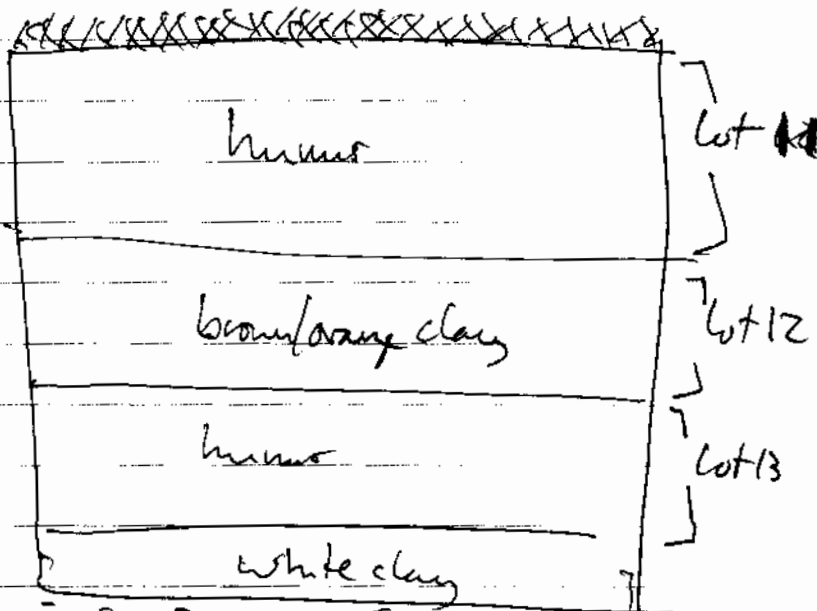 humus
Lot
brown/orange clay
Lot 12
humus
Lot 13
white clay